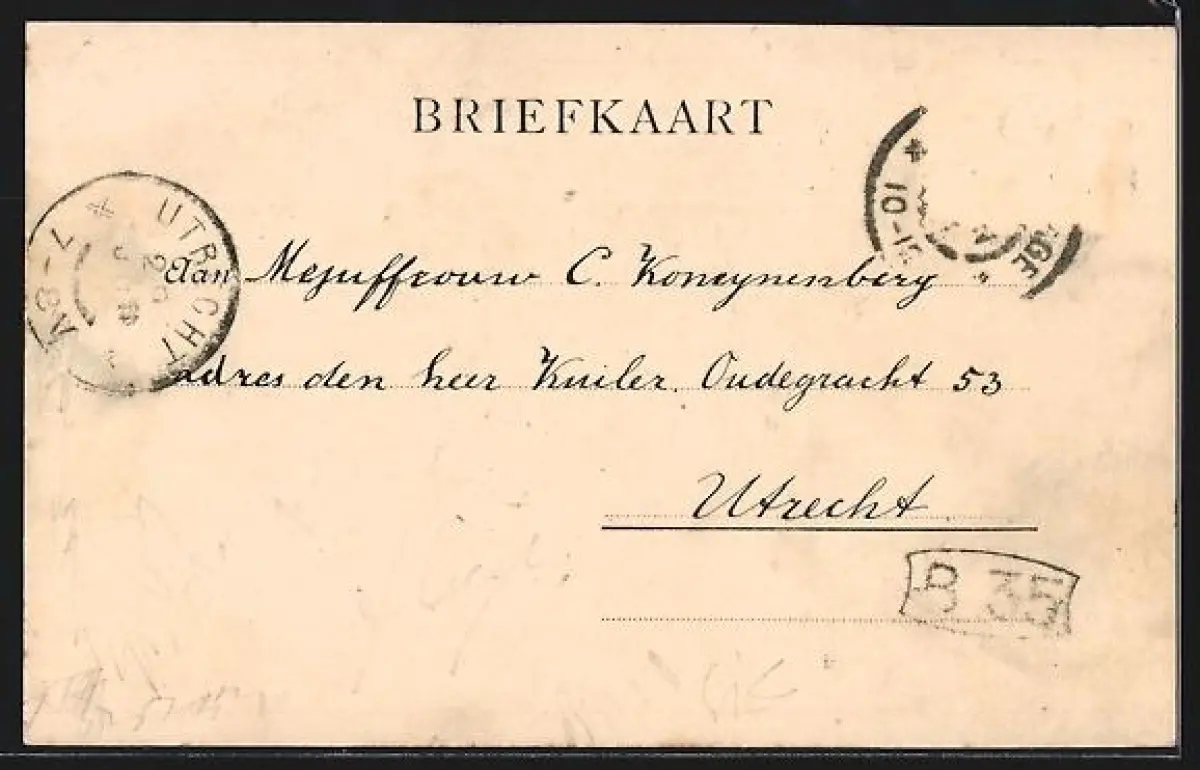 BRIEFKAART
UTRECHT
7-8V
10-11
Aan Mejuffrouw C. Koneynenberg
Adres den heer Kuiler. Oudegracht 53
Utrecht.
B 35